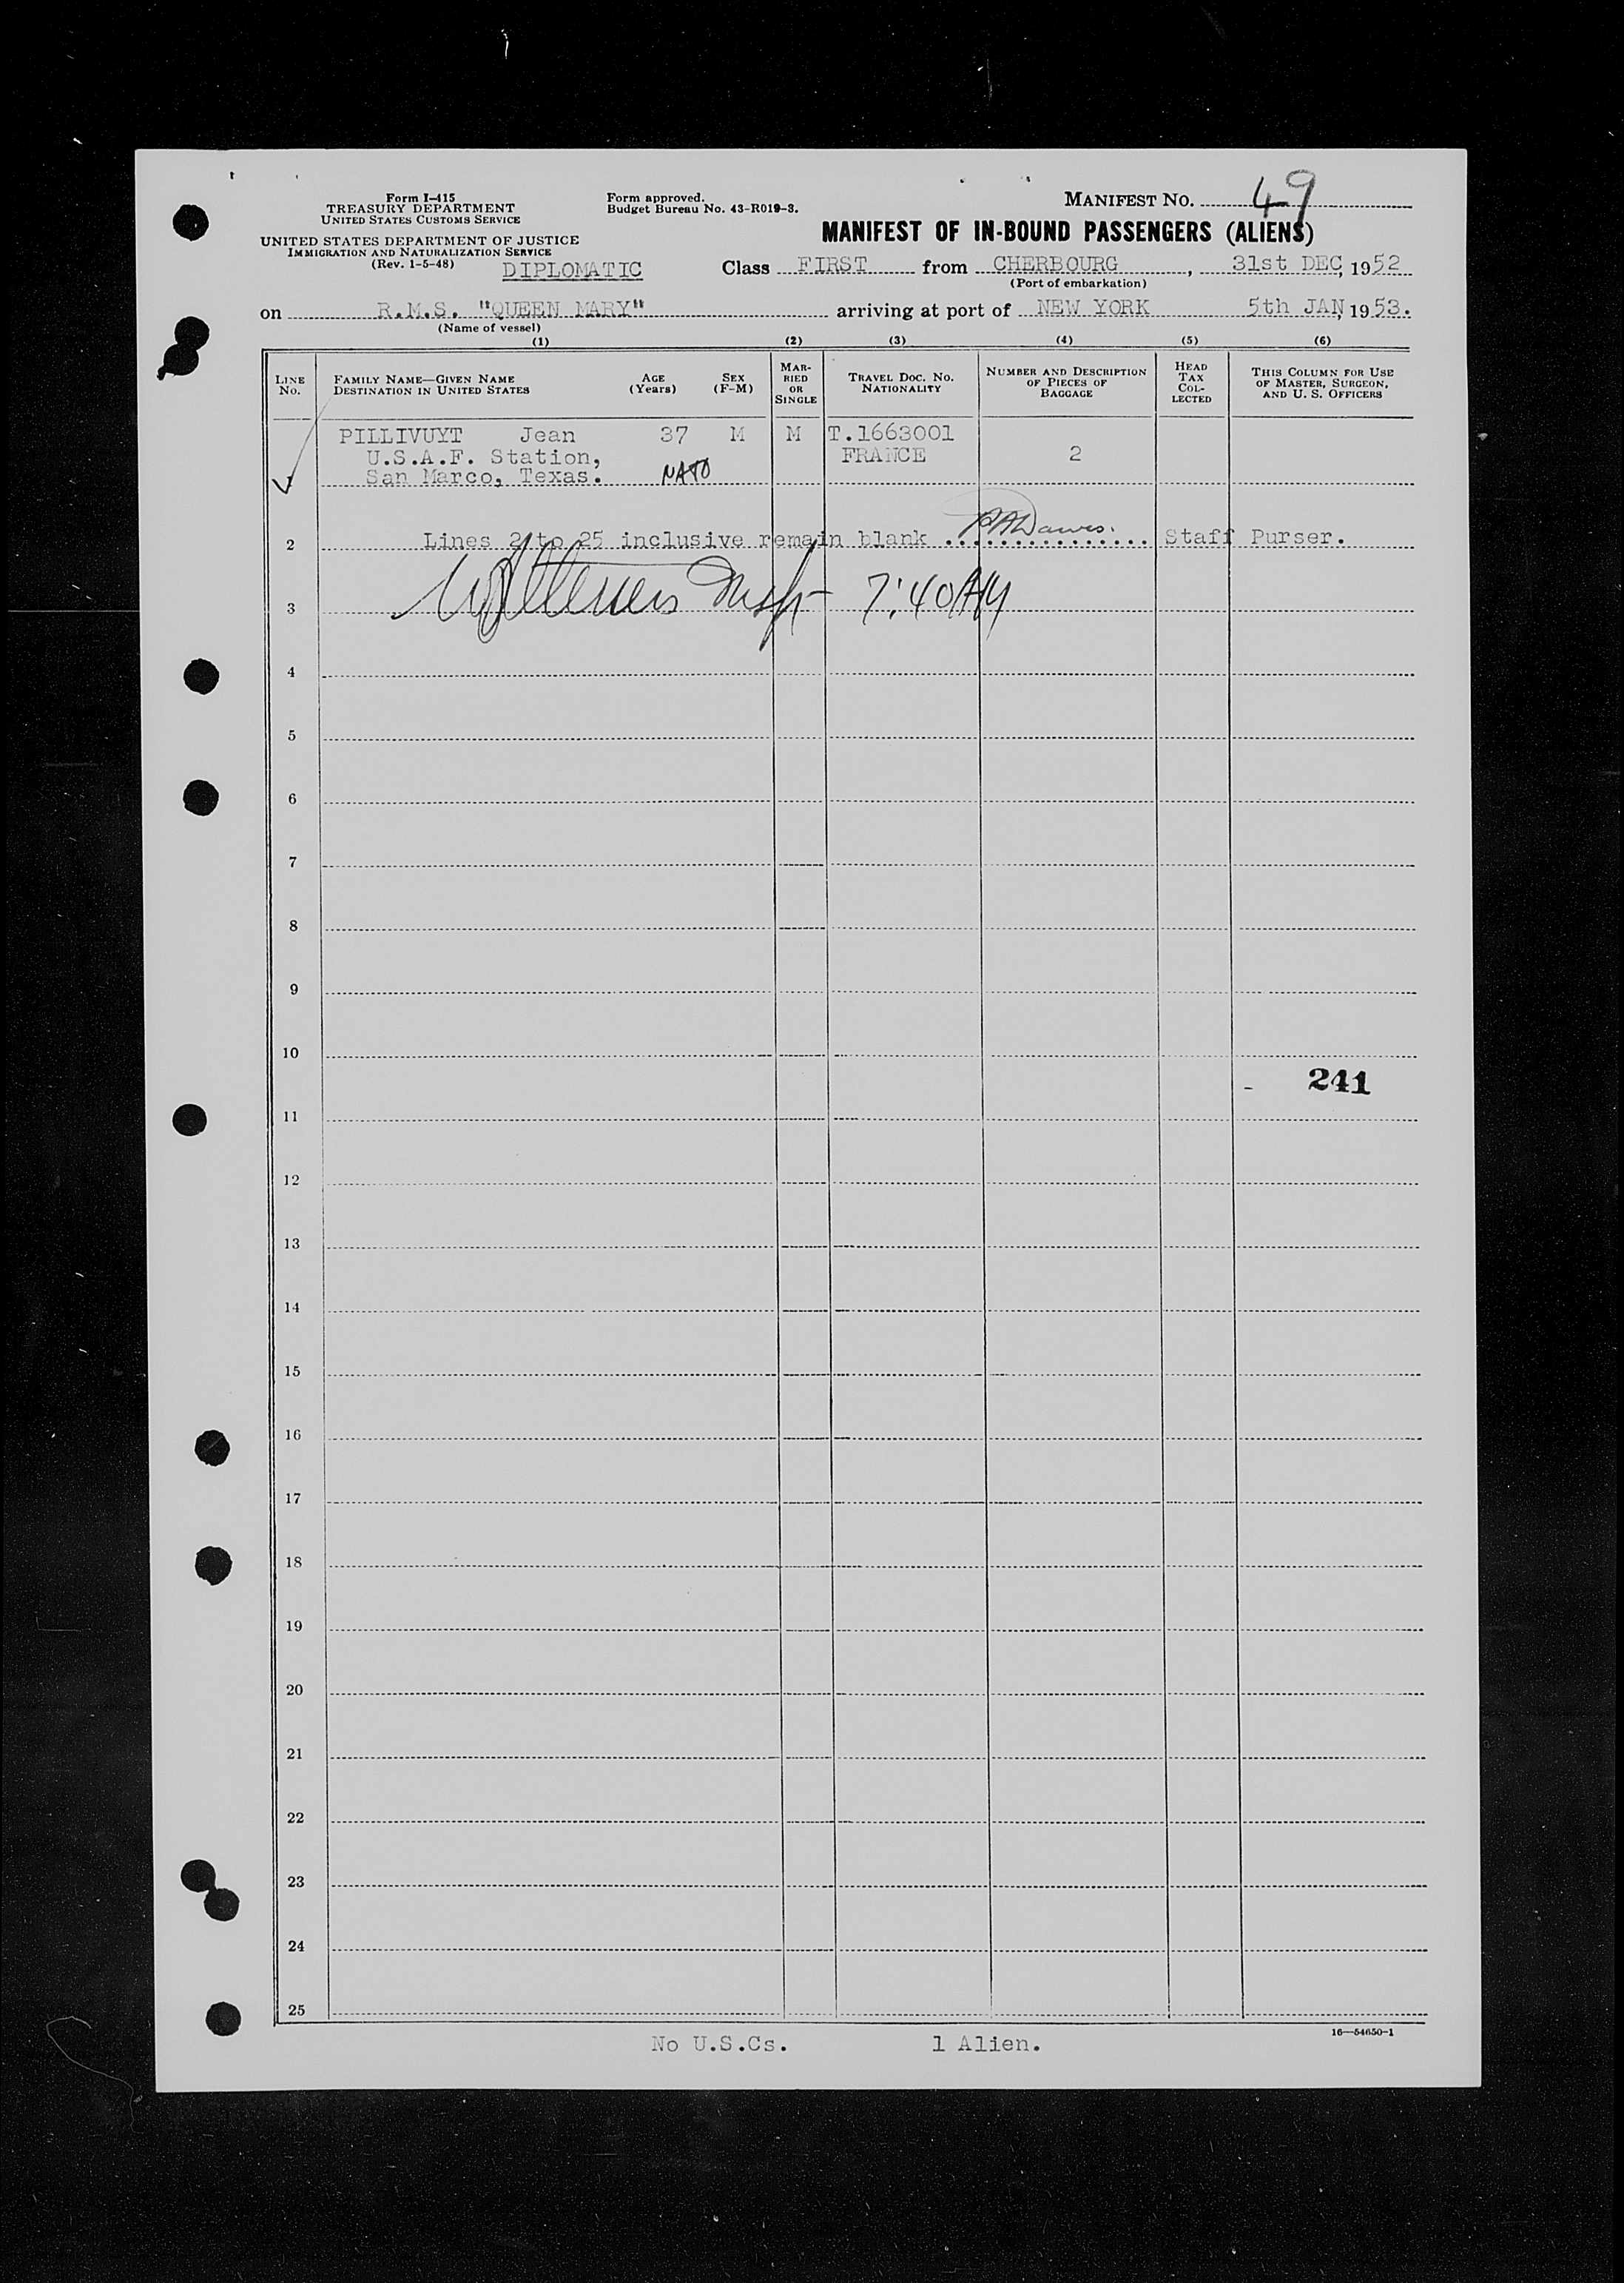 Form I-415
TREASURY DEPARTMENT
UNITED STATES CUSTOMS SERVICE
UNITED STATES DEPARTMENT OF JUSTICE
IMMIGRATION AND NATURALIZATION SERVICE
(Rev. 1-5-48)
DIPLOMATIC
Form approved.
Budget Bureau No. 43-R019-3.
MANIFEST NO. 49
MANIFEST OF IN-BOUND PASSENGERS (ALIENS)
Class FIRST from CHERBOURG, 31st DEC, 1952
(Port of embarkation)
on R.M.S. "QUEEN MARY" arriving at port of NEW YORK 5th JAN, 1953.
(Name of vessel)
(1) (2) (3) (4) (5) (6)
LINE NO.
FAMILY NAME—GIVEN NAME
DESTINATION IN UNITED STATES
AGE (Years)
SEX (F-M)
MARRIED OR SINGLE
TRAVEL DOC. NO.
NATIONALITY
NUMBER AND DESCRIPTION OF PIECES OF BAGGAGE
HEAD TAX COLLECTED
THIS COLUMN FOR USE OF MASTER, SURGEON, AND U. S. OFFICERS
PILLIVUYT Jean 37 M M T.1663001
U.S.A.F. Station, FRANCE 2
San Marco, Texas. NATO
2 Lines 2 to 25 inclusive remain blank ............... Staff Purser.
3 7:40 AM
4
5
6
7
8
9
10
241
11
12
13
14
15
16
17
18
19
20
21
22
23
24
25
16—54650-1
No U.S.Cs. 1 Alien.